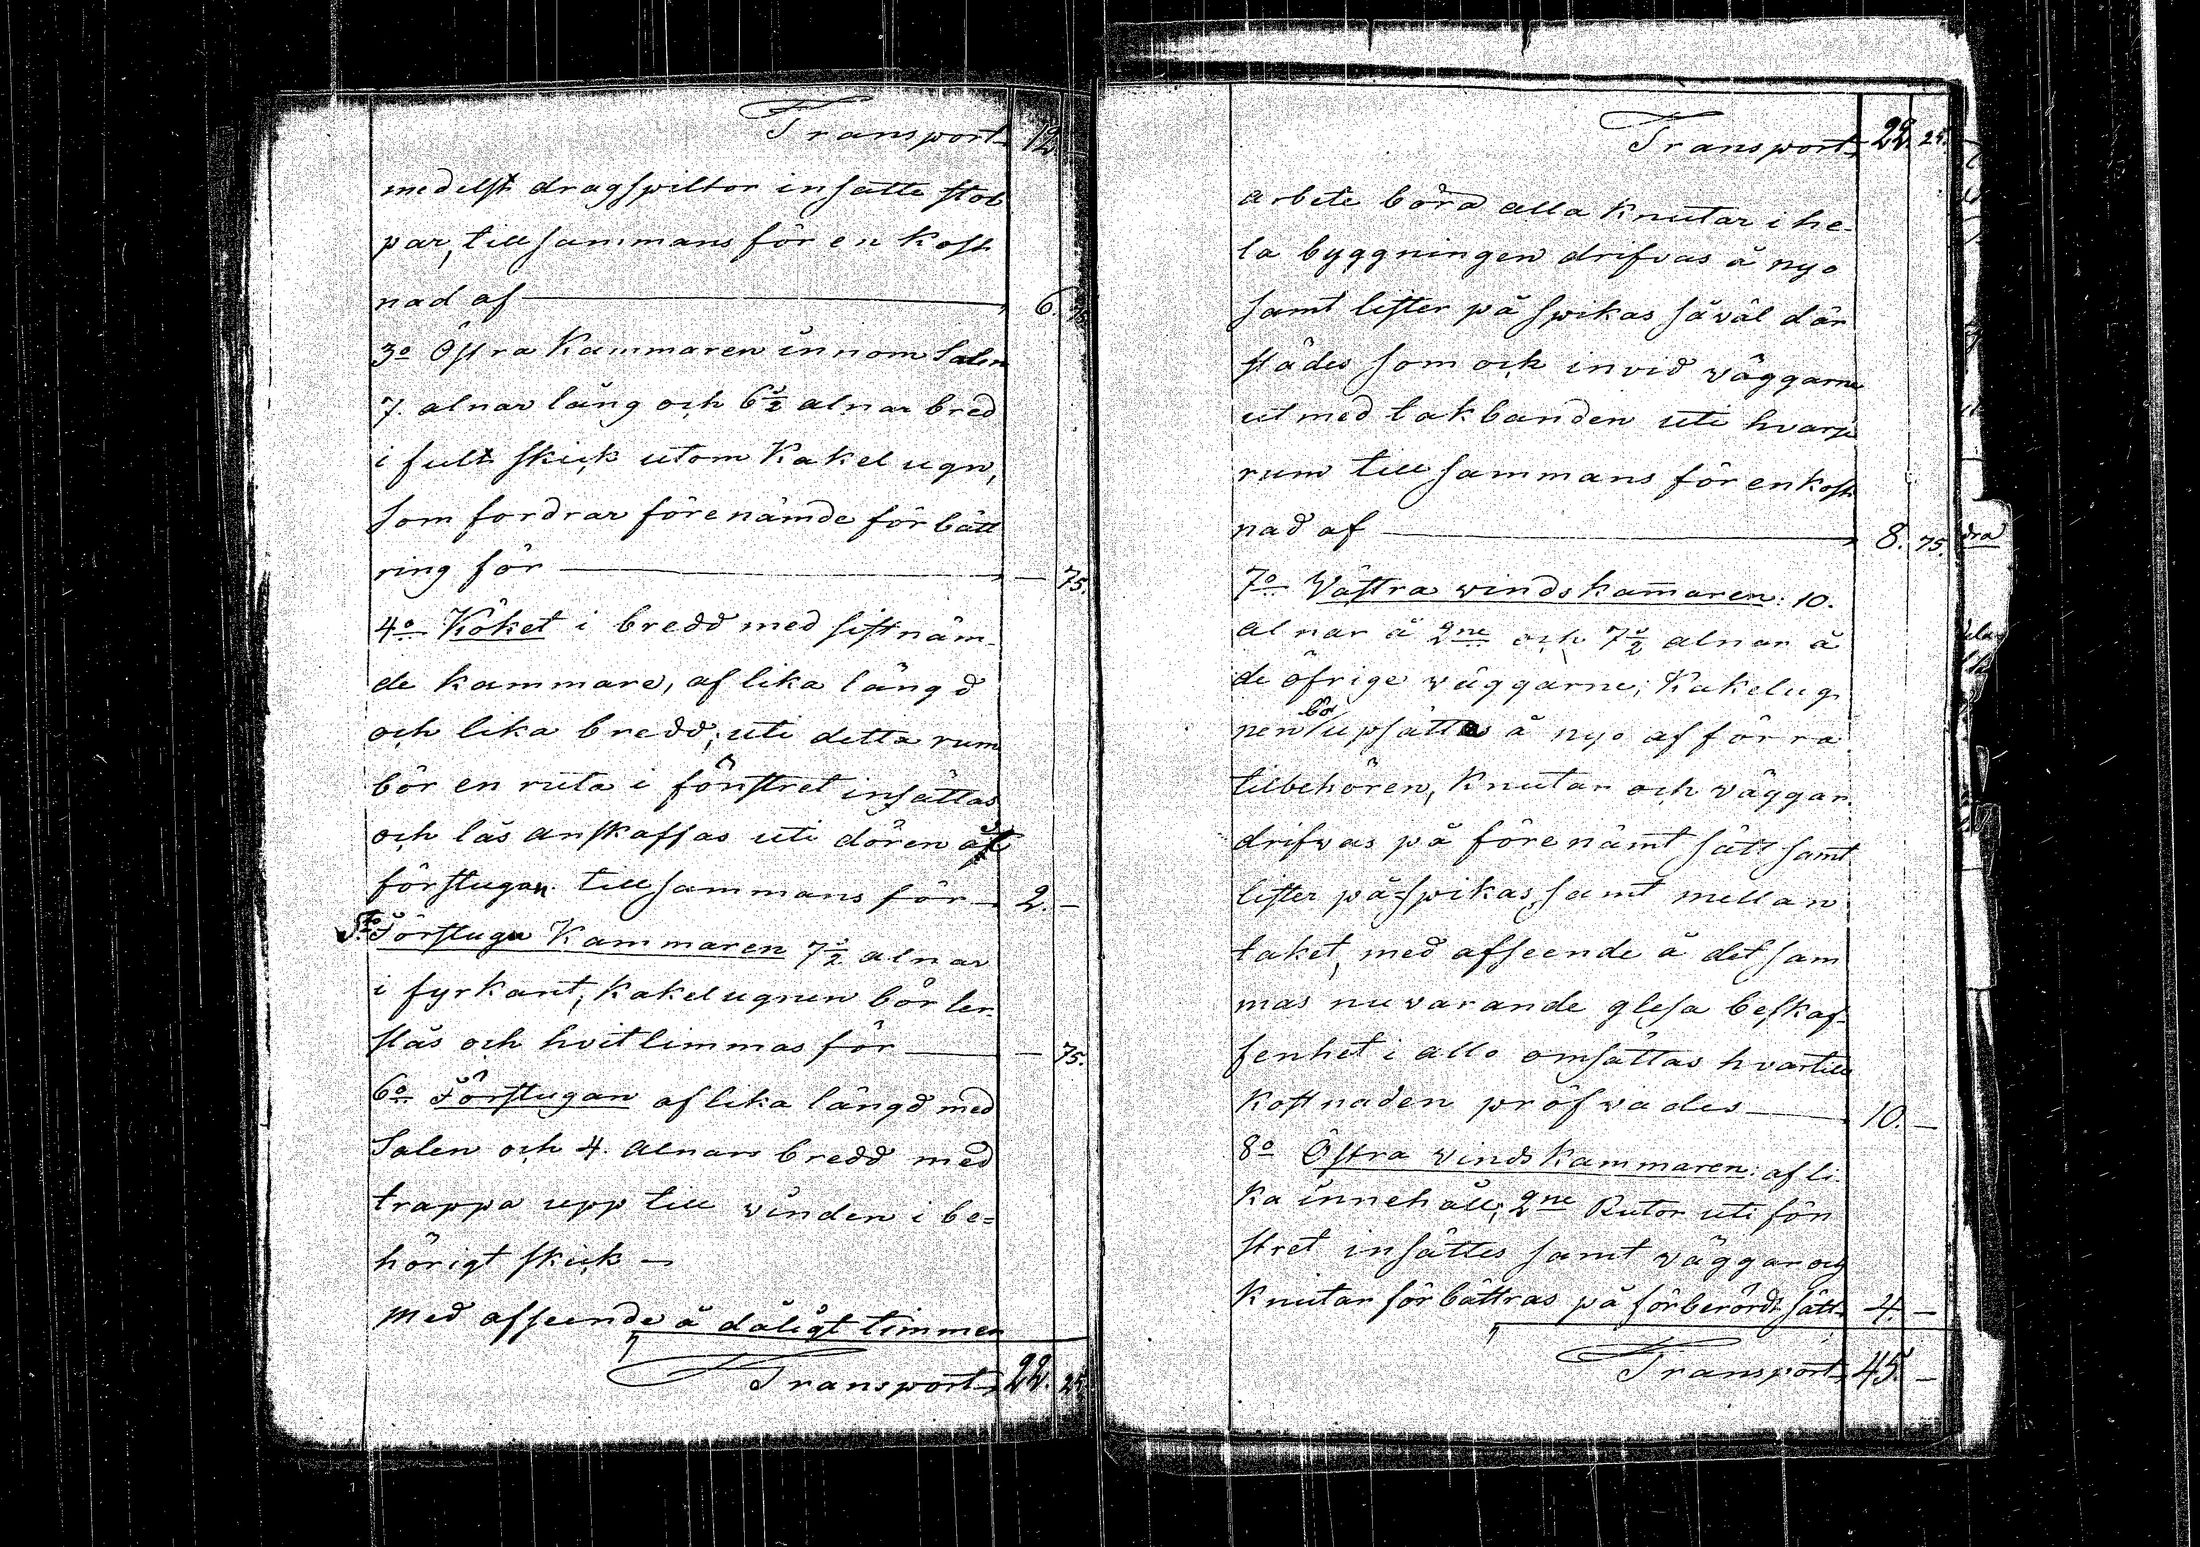 Transport 12. —
medelst dragspiltor insatte stol
par, tillsammans för en kost
nad af — 6. 75
3o Östra Kammaren innom Salen
7. alnar lång och 6½ alnar bred
i fult skick utom Kakelugn,
som fordrar förenämde förbätt
ring för — — 75.
4o Köket i bredd med sistnäm-
de kammare, af lika längd
och lika bredd; uti detta rum
bör en ruta i fönstret insättas
och lås anskaffas uti dören åt
förstugan tillsammans för 2. —
5to Förstugu Kammaren 7½ alnar
i fyrkant, Kakelugnen bör ler
slås och hvitlimmas för — — 75.
6o Förstugan af lika längd med
Salen och 4. alnars bredd med
trappa upp till vinden i be=
hörigt skick —
Med afseende å dåligt timmer
Transport 22. 25.
Transport 22. 25.
arbete böra alla Knutar i he-
la byggningen drifvas å nyo
samt lister på spikas såväl där
städes som ock invid väggarne
ut med takbanden uti hvarje
rum tillsammans för en kost
nad af — 8. 75.
7o Västra vindskam̄aren: 10.
alnar å 2ne och 7½ alnar å
de öfrige väggarne; Kakelug
nen bör upsättas å nyo af förra
tilbehören, Knutar och väggar
drifvas på förenämt sätt samt
lister på=spikas, samt mellan
taket, med afseende å det sam
mas nuvarande glesa beskaf-
fenhet i allo omsättas hvartill
kostnaden pröfvades — 10. —
8o Östra vindskammaren: af li
ka innehåll; 2ne Rutor uti fön
stret insättes samt väggar och
Knutar förbättras på förberörde sätt 4. —
Transport 45. —